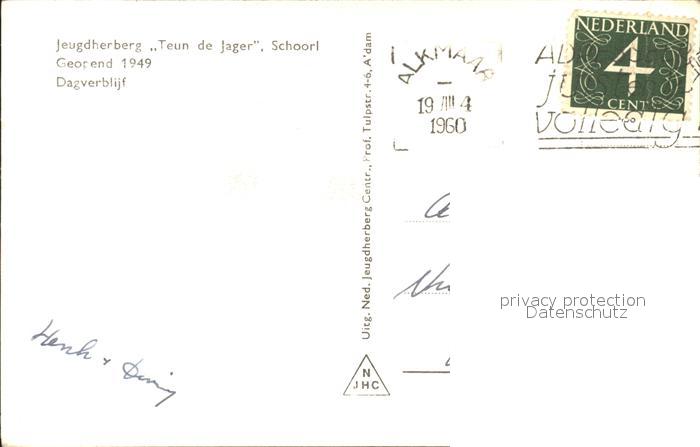 Jeugdherberg „Teun de Jager”, Schoorl
Geopend 1949
Dagverblijf
Uitg. Ned. Jeugdherberg Centr., Prof. Tulpstr. 4-6, A'dam
N
JHC
ALKMAAR
19 VIII 4
1960
NEDERLAND
4
CENT
volledig
privacy protection
Datenschutz
Henk +